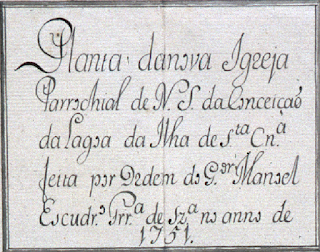 Planta danova Igreja
Parrochial de N. S. da Conceição
da Lagoa da Ilha de S.ta Cn.a
feita por Ordem do G.or Manoel
Escudr.o Frr.a de Sz.a no anno de
1751.